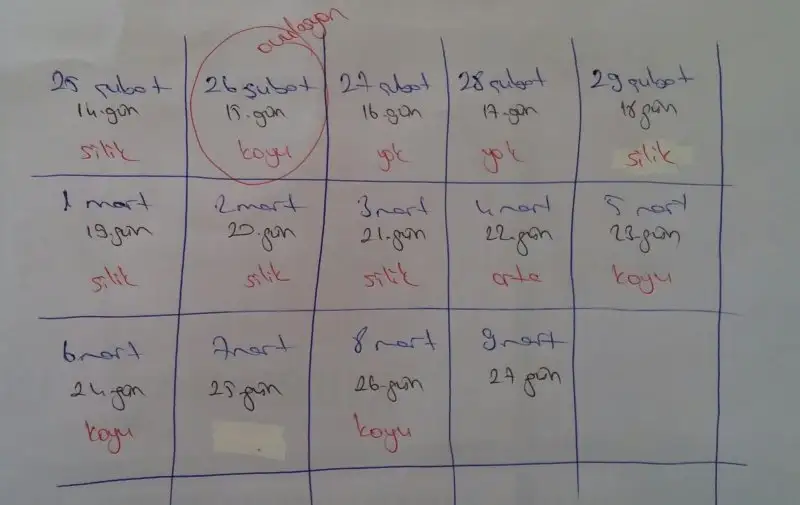 ovulasyon
25 şubat
14.gün
silik
26 şubat
15.gün
koyu
27 şubat
16.gün
yok
28 şubat
17.gün
yok
29 şubat
18.gün
silik
1 mart
19.gün
silik
2 mart
20.gün
silik
3 mart
21.gün
silik
4 mart
22.gün
orta
5 mart
23.gün
koyu
6 mart
24.gün
koyu
7 mart
25.gün
8 mart
26.gün
koyu
9 mart
27 gün